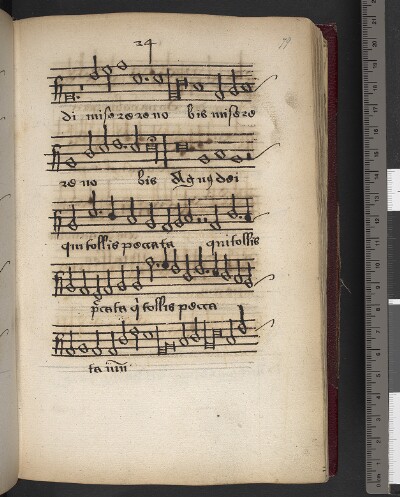 24
79
di misere re no bis misere
re no bis Agnus dei
qui tollis peccata qui tollis
pccata qi tollis pecca
ta